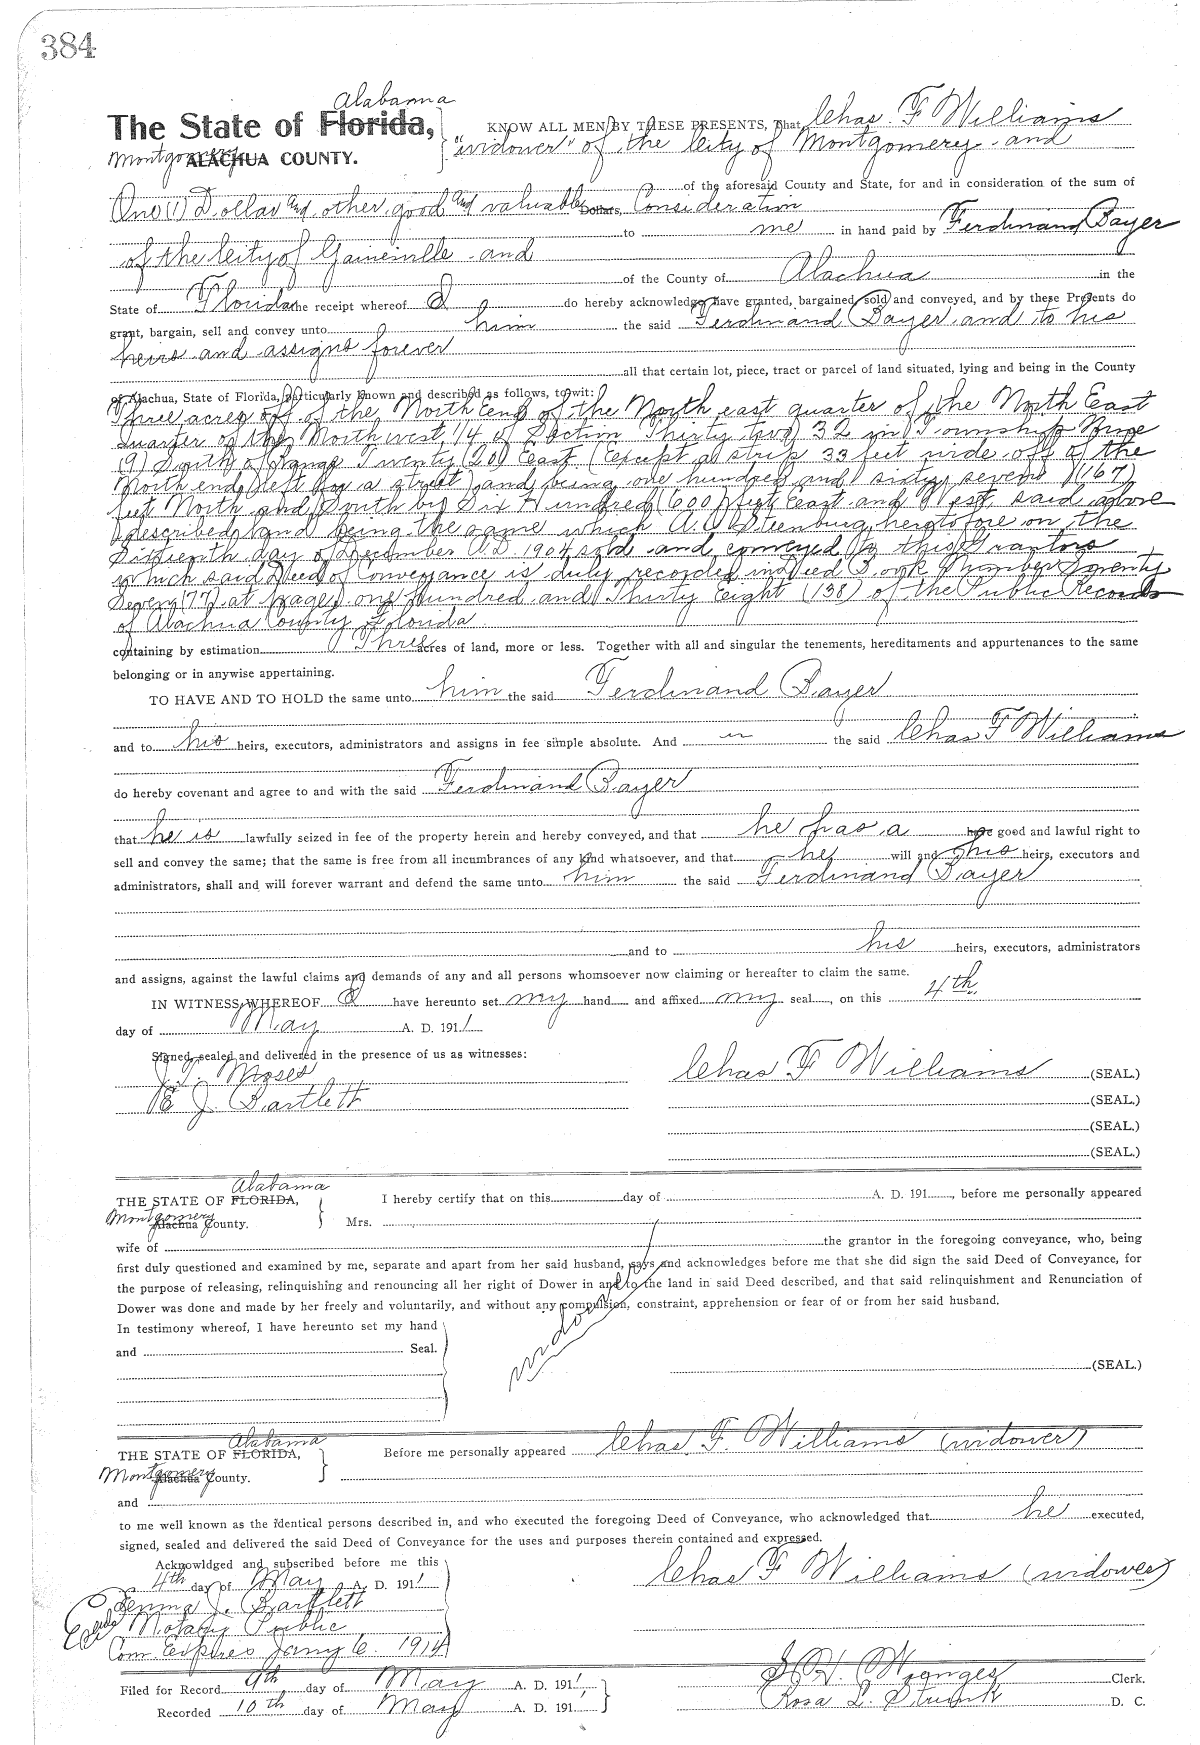 384
Alabama
The State of Florida, KNOW ALL MEN BY THESE PRESENTS, That Chas. F Williams
Montgomery
ALACHUA COUNTY. "widower" of the City of Montgomery and
of the aforesaid County and State, for and in consideration of the sum of
One (1) Dollar and other good and valuable Dollars, Consideration
to me in hand paid by Ferdinand Bayer
of the City of Gainesville and
of the County of Alachua in the
State of Florida the receipt whereof I do hereby acknowledge, have granted, bargained, sold and conveyed, and by these Presents do
grant, bargain, sell and convey unto him the said Ferdinand Bayer and to his
heirs and assigns forever
all that certain lot, piece, tract or parcel of land situated, lying and being in the County
of Alachua, State of Florida, particularly known and described as follows, to wit:
Three acres off of the North End of the North east quarter of the North East
Quarter of the North west 1/4 of Section Thirty two 32 in Township Nine
(9) South of range Twenty (20) East (Except a strip 33 feet wide off of the
North end left for a street) and being one hundred and sixty seven (167)
feet North and South by Six Hundred (600) feet East and West said above
described land being the same which A. O Steenburg heretofore on the
Sixteenth day of December A.D. 1904 sold and conveyed to this Grantors
which said Deed of Conveyance is duly recorded in Deed Book Number Seventy
Seven (77) at page one hundred and Thirty Eight (138) of the Public Records
of Alachua County Florida
containing by estimation Three acres of land, more or less. Together with all and singular the tenements, hereditaments and appurtenances to the same
belonging or in anywise appertaining.
TO HAVE AND TO HOLD the same unto him the said Ferdinand Bayer
and to his heirs, executors, administrators and assigns in fee simple absolute. And the said Chas F Williams
do hereby covenant and agree to and with the said Ferdinand Bayer
that he is lawfully seized in fee of the property herein and hereby conveyed, and that he has a have good and lawful right to
sell and convey the same; that the same is free from all incumbrances of any kind whatsoever, and that he will and his heirs, executors and
administrators, shall and will forever warrant and defend the same unto him the said Ferdinand Bayer
and to his heirs, executors, administrators
and assigns, against the lawful claims and demands of any and all persons whomsoever now claiming or hereafter to claim the same.
IN WITNESS WHEREOF I have hereunto set my hand and affixed my seal, on this 4th.
day of May A. D. 1911
Signed, sealed and delivered in the presence of us as witnesses:
J. T. Moses Chas F Williams (SEAL.)
E J. Bartlett (SEAL.)
(SEAL.)
(SEAL.)
Alabama
THE STATE OF FLORIDA, I hereby certify that on this day of A. D. 191 , before me personally appeared
Montgomery
Alachua County. Mrs.
wife of the grantor in the foregoing conveyance, who, being
first duly questioned and examined by me, separate and apart from her said husband, says and acknowledges before me that she did sign the said Deed of Conveyance, for
the purpose of releasing, relinquishing and renouncing all her right of Dower in and to the land in said Deed described, and that said relinquishment and Renunciation of
Dower was done and made by her freely and voluntarily, and without any compulsion, constraint, apprehension or fear of or from her said husband.
widower
In testimony whereof, I have hereunto set my hand
and Seal. (SEAL.)
Alabama
THE STATE OF FLORIDA, Before me personally appeared Chas. F. Williams (widower)
Montgomery
Alachua County.
and
to me well known as the identical persons described in, and who executed the foregoing Deed of Conveyance, who acknowledged that he executed,
signed, sealed and delivered the said Deed of Conveyance for the uses and purposes therein contained and expressed.
Acknowldged and subscribed before me this Chas F Williams (widower)
4th day of May A. D. 1911
Emma J. Bartlett
Notary Public
Com. Expires Jany 6. 1914
Filed for Record 9th day of May A. D. 1911 S. H. Wienges Clerk.
Recorded 10th day of May A. D. 191 Rosa L. Strunk D. C.